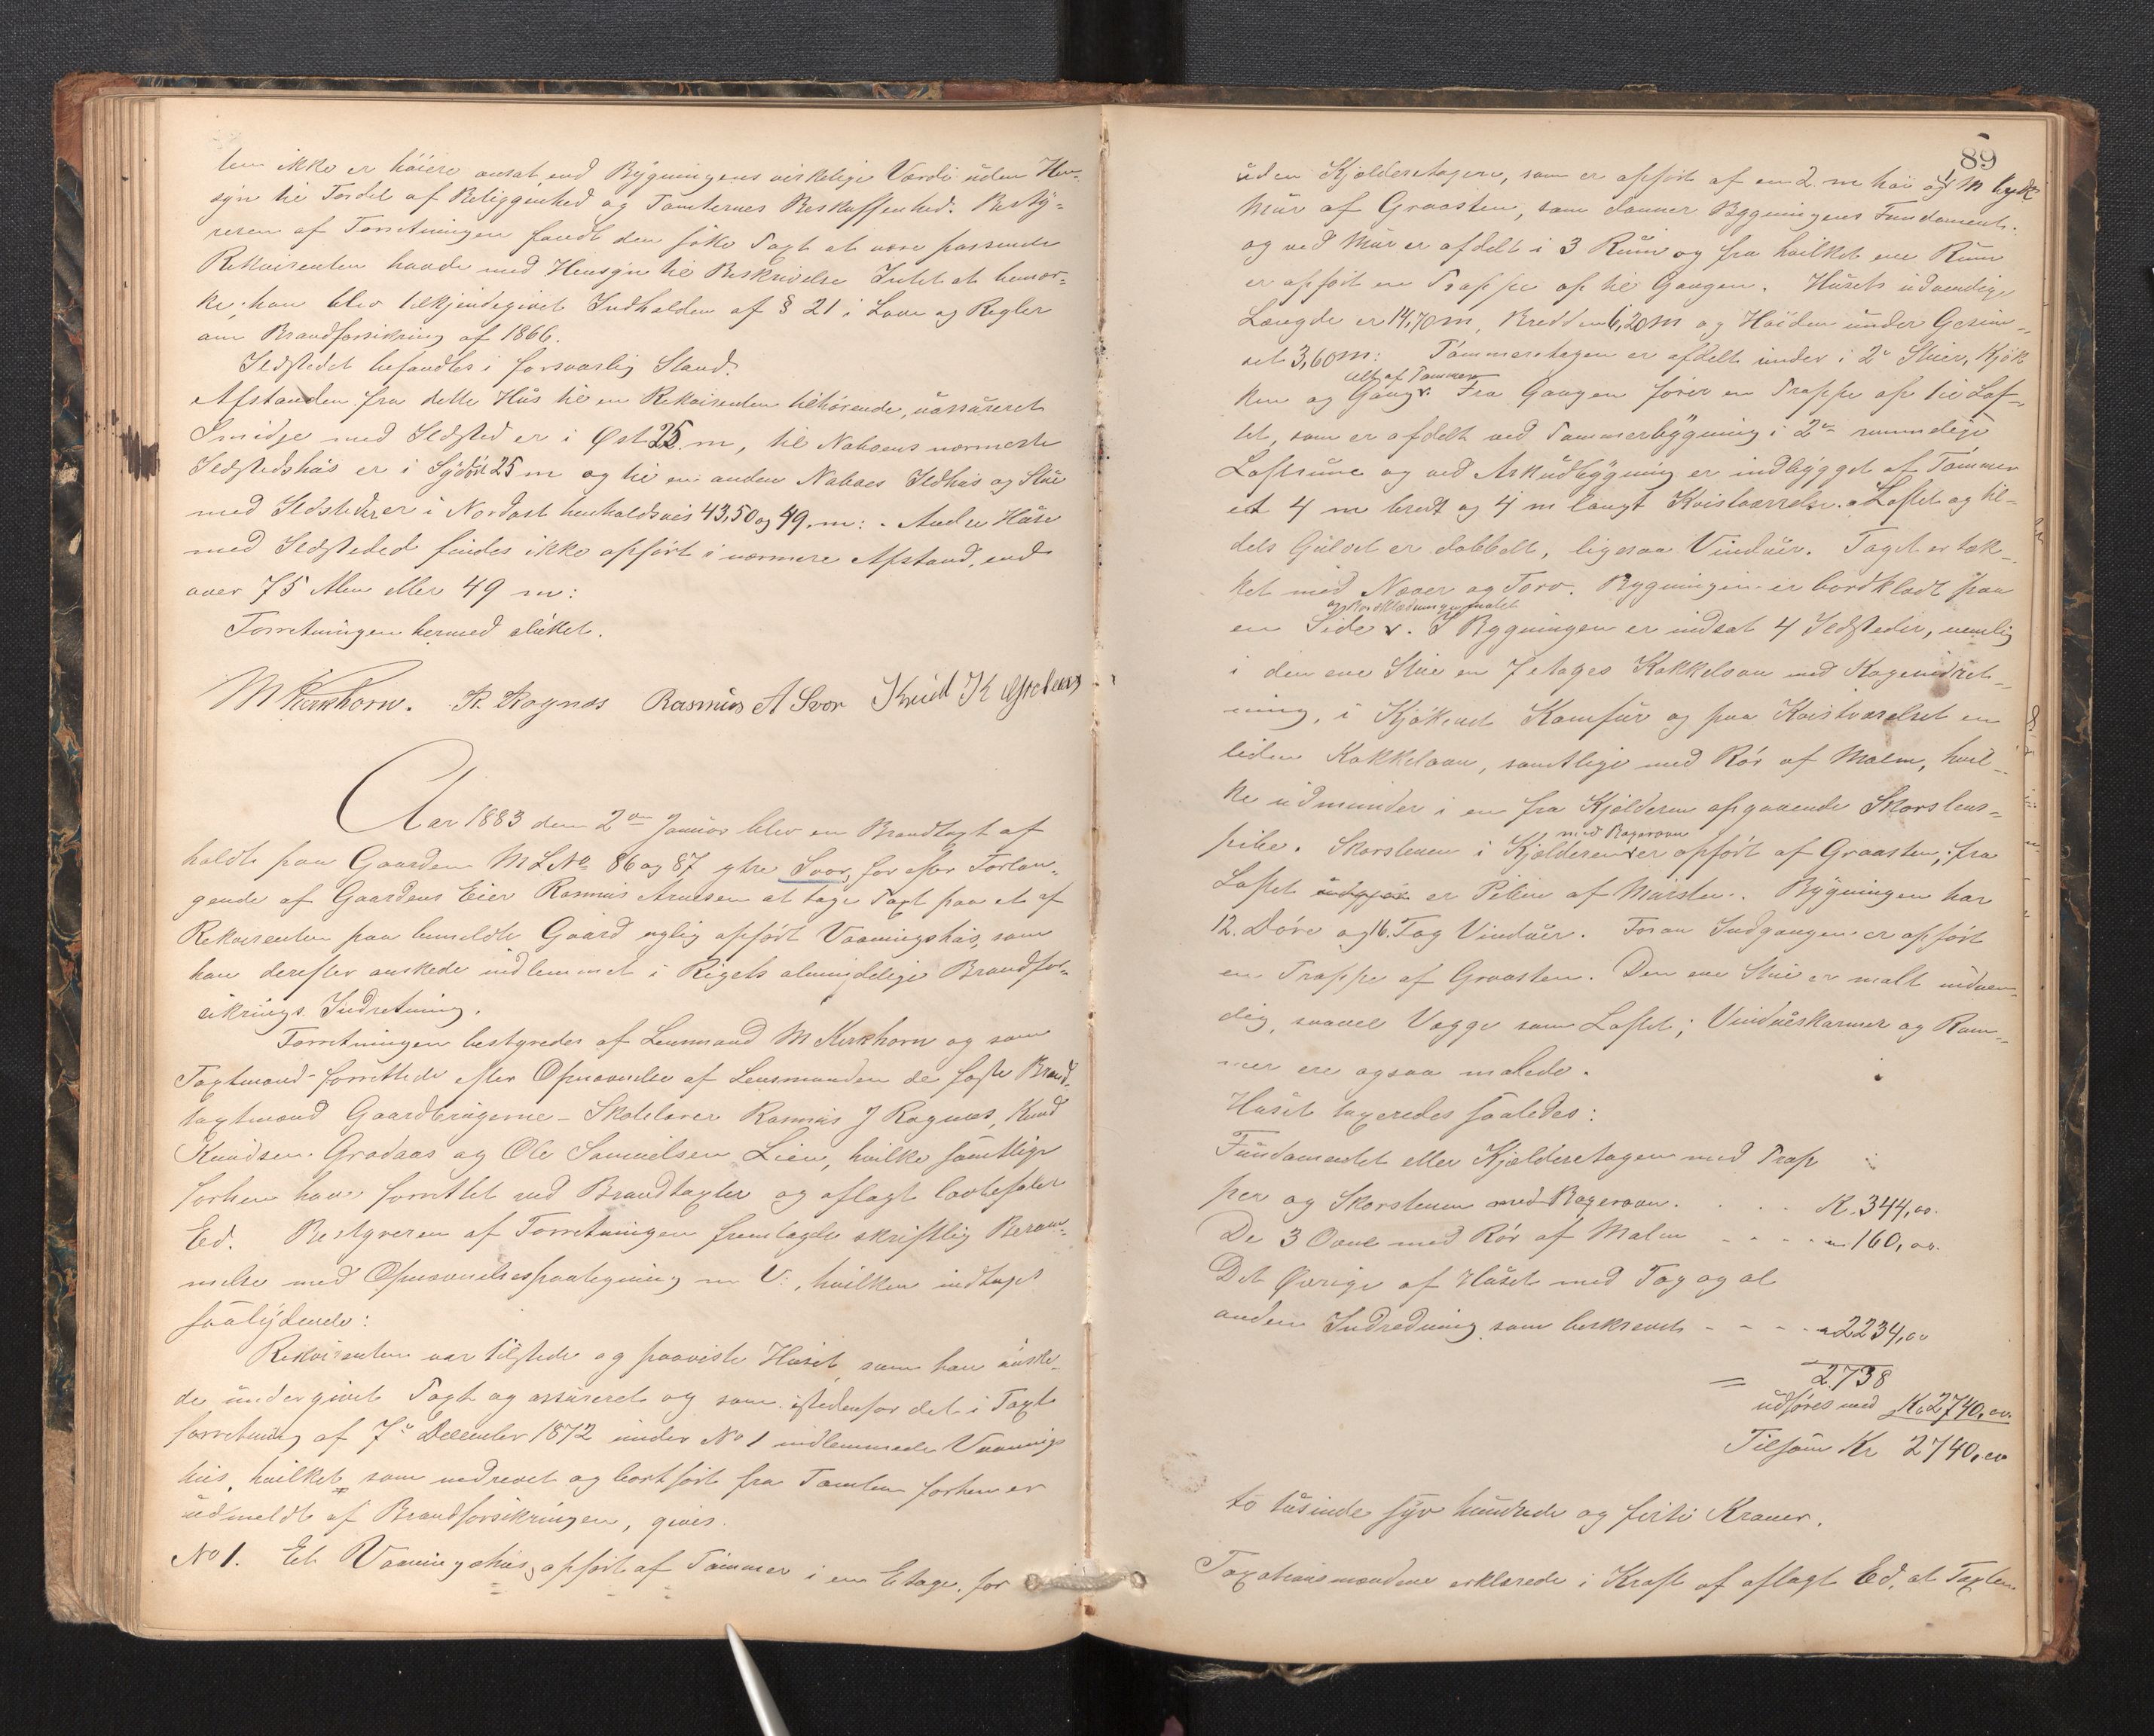 ten ikke er høiere ansat end Bygningens virkelige Værdi uden Hen-
syn til Fordel af Beliggenhed og Tomternes Beskaffenhed. Besty-
reren af Forretningen fandt den satte Taxt at være passende
Rekvirenten havde med Hensyn til Beskrivelse Intet at bemær-
ke; han blev tilkjendegivet Indholden af § 21 i Love og Regler
om Brandforsikring af 1866.
Ildstedet befandtes i forsvarlig Stand.
Afstanden fra dette Hus til en Rekvirenten tilhørende, uassureret
Smidje med Ildsted er i Øst 25 m, til Naboens nærmeste
Ildstedshus er i Sydøst 25 m og til en anden Naboes Ildhus og Stue
med Ildsteder er i Nordost henholdsvis 43,50 og 49. m: . Andre Huse
med Ildsteded findes ikke opført i nærmere Afstand, end
over 75 Alen eller 49 m:
Forretningen hermed sluttet.
M Kirkhorn. R. Ragnæs Rasmus A Svor Knud K
Aar 1883 den 2den Januar blev en Brandtaxt af
holdt paa Gaarden M L No 86 og 87 ytre Svor, for efter Forlan-
gende af Gaardens Eier Rasmus Arnesen at tage Taxt paa et af
Rekvirenten paa bemeldte Gaard nylig opført Vaaningshus, som
han derefter ønskede indlemmet i Rigets almindelige Brandfor-
sikrings Indretning.
Forretningen bestyredes af Lensmand M Kirkhorn og som
Taxtmænd forrettede efter Opnævnelse af Lensmanden de faste Brand-
taxtmænd Gaardbrugerne - Skolelærer Rasmus J Ragnæs, Knud
Knudsen Grødaas og Ole Samuelsen Lien, hvilke samtlige
forhen have forrettet ved Brandtaxter og aflagt lovbefalet
Ed. Bestyreren af Forretningen fremlagde skriftlig Beram-
melse med Opnævnelsespaategning m V:, hvilken indtages
saalydende:
Rekvirenten var tilstede og paaviste Huset, som han ønske-
de undergivet Taxt og assureret og som istedenfor det i Taxt
forretning af 7de December 1872 under No 1 indlemmede Vaanings
hus, hvilket, som nedrevet og bortført fra Tomten forhen er
udmeldt af Brandforsikringen, gives.
No 1. Et Vaaningshus, opført af Tømmer i en Etage, for
89
uden Kjælderetagen, som er opført af en 2 m høi og 1 M tyk
Mur af Graasten, som danner Bygningens Fundament.
og ved Mur er afdelt i 3 Rum og fra hvilket ene Rum
er opført en Trappe op til Gangen. Husets udvendige
Længde er 14,70 m, Bredden 6,20 m og Høiden under Gesim-
set 3,60 m: Tømmeretagen er afdelt under i 2de Stuer, Kjøk
alt af Tømmer
ken og Gang v. Fra Gangen fører en Trappe op til Lof-
tet, som er afdelt ved Tømmerbygning i 2de rummelige
Loftsrum og ved Arkudbygning er indbygget af Tømmer
et 4 m bredt og 4 m langt Kvistværelse. Loftet og til-
dels Gulvet er dobbelt, ligesaa Vinduer. Taget er tæk-
ket med Næver og Torv. Bygningen er bordklædt paa
og Bordklædningen malet
en Side v. I Bygningen er indsat 4 Ildsteder, nemlig
i den ene Stue en 7 etages Kakkelovn med Kogeindret-
ning, i Kjøkenet Komfur og paa Kvistværelset en
liden Kakkelovn, samtlige med Rør af Malm, hvil-
ke udmunder i en fra Kjælderen opgaaende Skorstens-
med Bagerovn
pibe. Skorstenen i Kjælderen v er opført af Graasten; fra
Loftet er Piben af Mursten. Bygningen har
12. Døre og 16. Fag Vinduer. Foran Indgangen er opført
en Trappe af Graasten. Den ene Stue er malt indven-
dig, saavel Vægge som Loftet; Vindueskarmer og Ram-
mer ere ogsaa malede.
Huset taxeredes saaledes:
Fundamentet eller Kjælderetagen med Trap
per og Skorstenen med Bagerovn. . . . K. 344,00.
De 3 Ovne med Rør af Malm - - - - " 160,00.
Det Øvrige af Huset med Tag og al
anden Indredning som beskrevet - - - - " 2234,00
= 2738
udføres med Kr 2740,00.
Tilsam Kr 2740,00
to tusinde syv hundrede og firti Kroner.
Taxationsmændene erklærede i Kraft af aflagt Ed, at Taxten